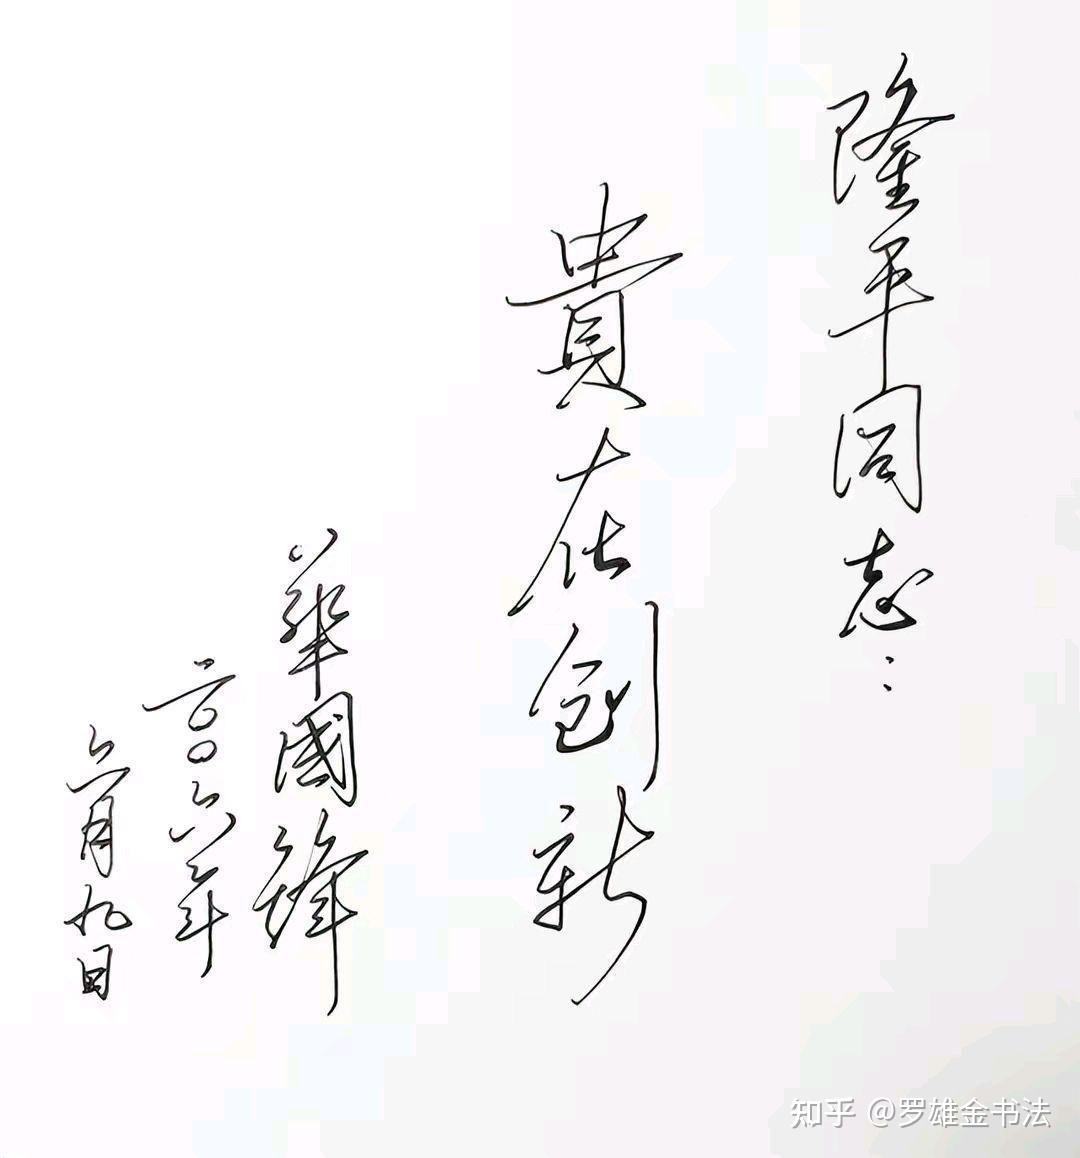 隆平同志：
貴在創新
華國鋒
二〇〇六年
六月九日
知乎 @罗雄金书法